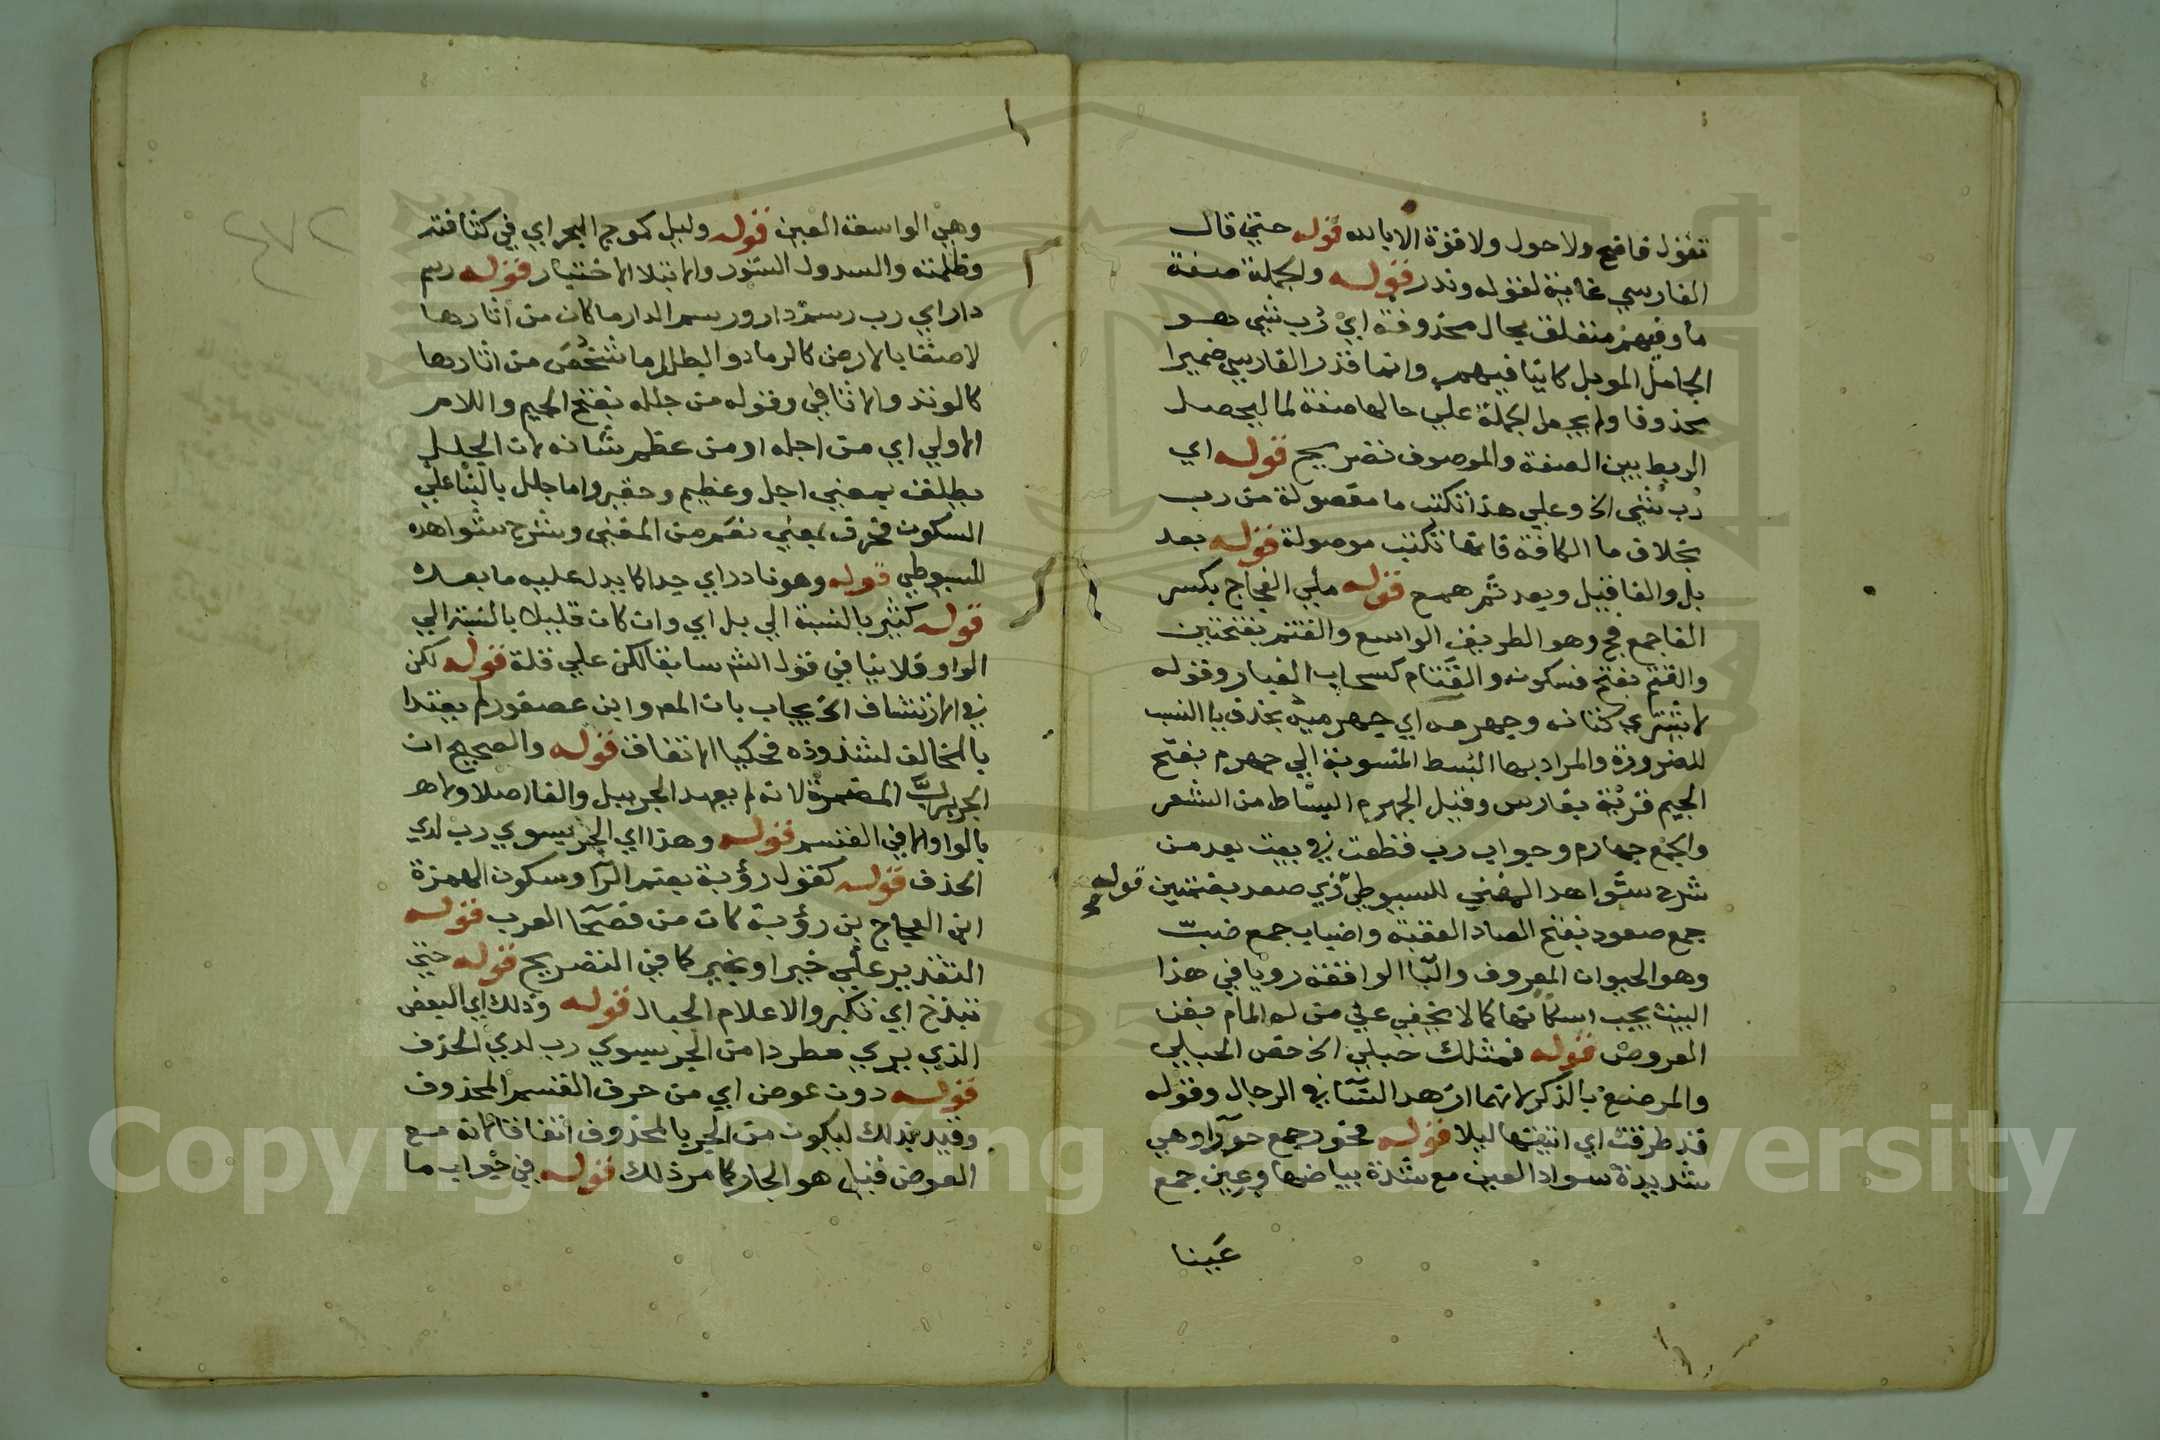 تقول فافتح ولا حول ولا قوة الا بالله قوله حتى قال
الفارسي غاية لقوله وندر قوله والجملة صفة
ما وفيهم متعلق بحال محذوفة اي رب شي هو
الجامل الموبل كاينا فيهم وانما قدر الفارسي ضميرا
محذوفا ولم يجعل الجملة على حالها صفة لما ليحصل
الربط بين الصفة والموصوف تصريح قوله اي
رب شي الخ وعلى هذا تكتب ما مفصولة من رب
بخلاف ما الكافة فانها تكتب موصولة قوله بعد
بل والفا قيل وبعد ثم همع قوله ملي الفجاج بكسر
الفا جمع فج وهو الطريق الواسع والقتم بفتحتين
والقتم بفتح فسكون والقتام كسحاب الغبار وقوله
لا يشتري كتانه وجهرمه اي جهرميه بحذف يا النسب
للضرورة والمراد بها البسط المنسوبة الى جهرم بفتح
الجيم قرية بفارس وقيل الجهرم البساط من الشعر
والجمع جهارم وجواب رب قطعت في بيت بعد من
شرح شواهد المغني للسيوطي ذي صعد بضمتين قوله
جمع صعود بفتح الصاد العقبة واضباب جمع ضب
وهو الحيوان المعروف والبا الواقعة رويا في هذا
البيت يجب اسكانها كما لا يخفى على من له المام بفن
العروض قوله فمثلك حبلى الخ خص الحبلى
والمرضع بالذكر لانهما ازهد النسا في الرجال وقوله
قد طرقت اي اتيتها ليلا قوله حور جمع حورا وهي
شديدة سواد العين مع شدة بياضها وعين جمع
عينا
وهي الواسعة العين قوله وليل كموج البحر اي في كثافته
وظلمته والسدول الستور والابتلا الاختيار قوله رسم
دار اي رب رسم دار ورسم الدار ما كان من اثارها
لاصقا بالارض كالرماد والطلل ما شخص من اثارها
كالوتد والاثافي وقوله من جلله بفتح الجيم واللام
الاولى اي من اجله او من عظم شانه لان الجلل
يطلق بمعنى اجل وعظيم وحقير واما جلل بالبنا على
السكون فحرف بمعنى نعم من المغني وشرح شواهده
للسيوطي قوله وهو نادر اي جدا كما يدل عليه ما بعده
قوله كثير بالنسبة الى بل اي وان كان قليلا بالنسبة الى
الواو فلا ينافي قول الشم سابقا لكن على قلة قوله لكن
في الارتشاف الخ يجاب بان المص وابن عصفور لم يعتدا
بالمخالف لشذوذه فحكيا الاتفاق قوله والصحيح ان
الجر برب المضمرة لانه لم يعهد الجر ببل والفا اصلا ولا
بالواو الا في القسم قوله وهذا اي الجر بسوى رب لدى
الحذف قوله كقول رؤبة بضم الرا وسكون الهمزة
ابن العجاج بن رؤبة كان من فصحا العرب قوله
التقدير على خير او بخير كما في التصريح قوله حتى
تبذخ اي تكبر والاعلام الجبال قوله وذلك اي البعض
الذي يرى مطردا من الجر بسوى رب لدى الحذف
قوله دون عوض اي من حرف القسم المحذوف
وقيد بذلك ليكون من الجر بالمحذوف اتفاقا لانه مع
العوض قيل هو الجار كما مر ذلك قوله في جواب ما
Copyright © King Saud University